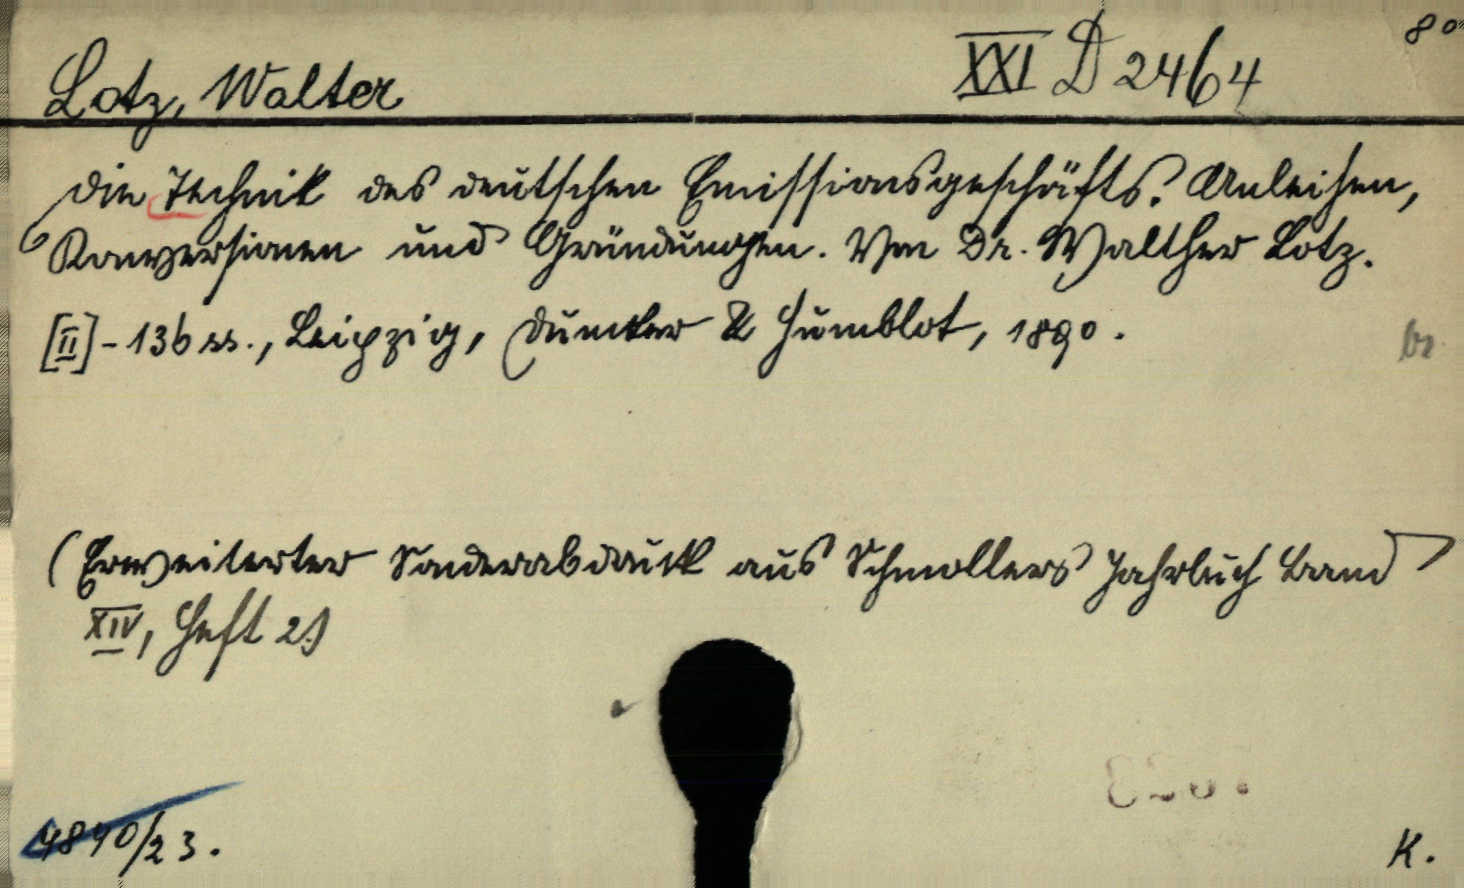 8°
XXI D 2464
Lotz, Walter
Die Technik des deutschen Emissionsgeschäfts. Anleihen,
Konversionen und Gründungen. Von Dr. Walther Lotz.
[II] - 136 ss., Leipzig, Duncker & Humblot, 1890.
br.
(Erweiterter Sonderabdruck aus Schmollers Jahrbuch Band
XIV, Heft 2.)
4840/23.
K.